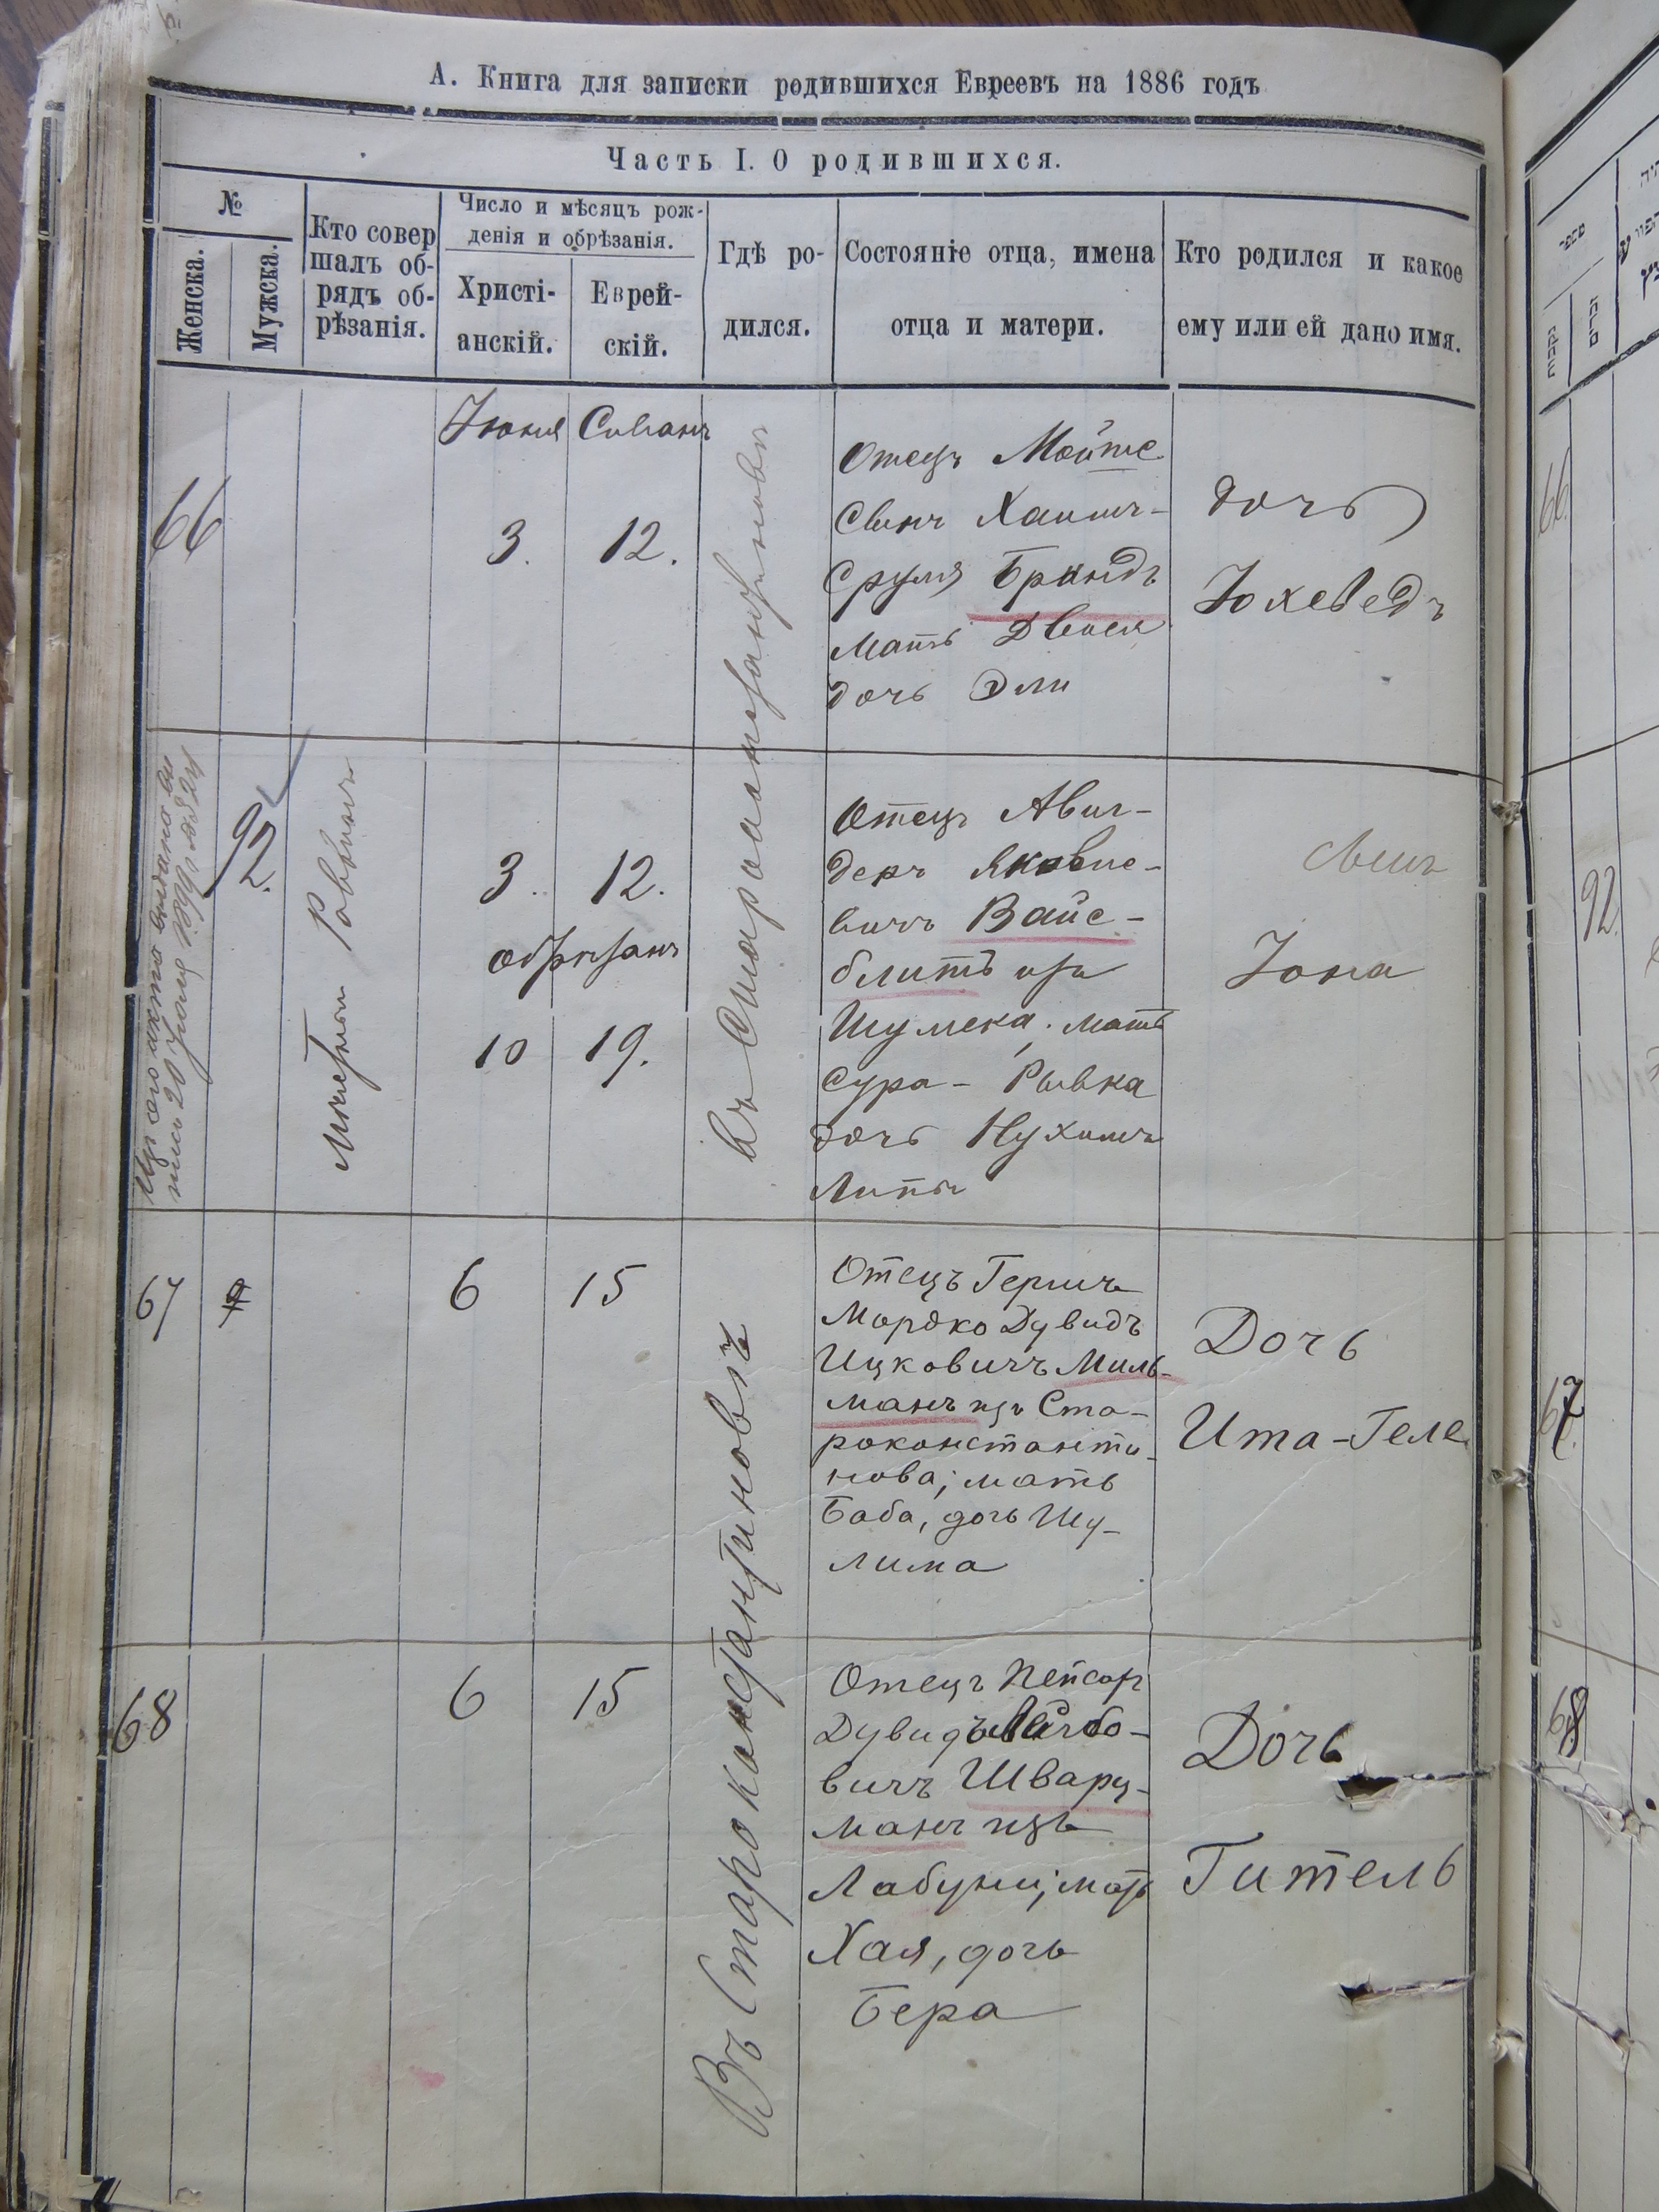 А. Книга для записки родившихся Евреевъ на 1886 годъ
Часть I. О родившихся.
№
Женска.
Мужска.
Кто совер
шалъ об-
рядъ об-
рѣзанія.
Число и мѣсяцъ рож-
денія и обрѣзанія.
Христі-
анскій.
Еврей-
скій.
Гдѣ ро-
дился.
Состояніе отца, имена
отца и матери.
Кто родился и какое
ему или ей дано имя.
66
Іюня
Сиванъ
3.
12.
въ Староконстантиновѣ
Отецъ
Сынъ Хаимъ-
Сруля Брандъ
Мать Двося
дочь Эли
дочь
Юхеведъ
Изъ сего акта выдана вы
пись 20 1899 г.
92
Раввинъ
3.
12.
обрѣзанъ
10
19.
Отецъ Авиг-
деръ Яковле-
вичъ Вайс-
блитъ изъ
Шумска. мать
Сура - Рывка
дочь Нухимъ
Липы
Сынъ
Іона
67
6
15
Въ Староконстантиновѣ
Отецъ Гершъ
Мордко Дувидъ
Ицковичъ Миль-
манъ изъ Ста-
роконстанти-
нова; мать
Баба, дочь Шу-
лима
Дочь
Ита-Геле
68
6
15
Отецъ Пейсахъ
Дувидъ
вичъ Шварц-
манъ изъ
Лабуни; мать
Хая, дочь
Бера
Дочь
Гитель
66
92.
67.
68
ספר
נקבות
זכרים